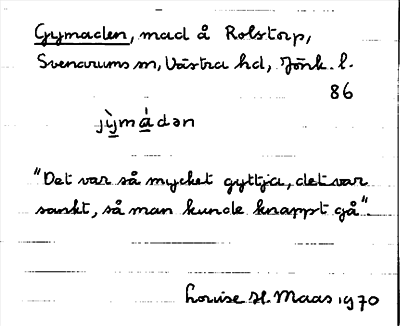 Gymaden, mad å Rolstorp,
Svenarums sn, Västra hd, Jönk. l.
86
"Det var så mycket gyttja, det var
sankt, så man kunde knappt gå".
Louise H. Maas 1970